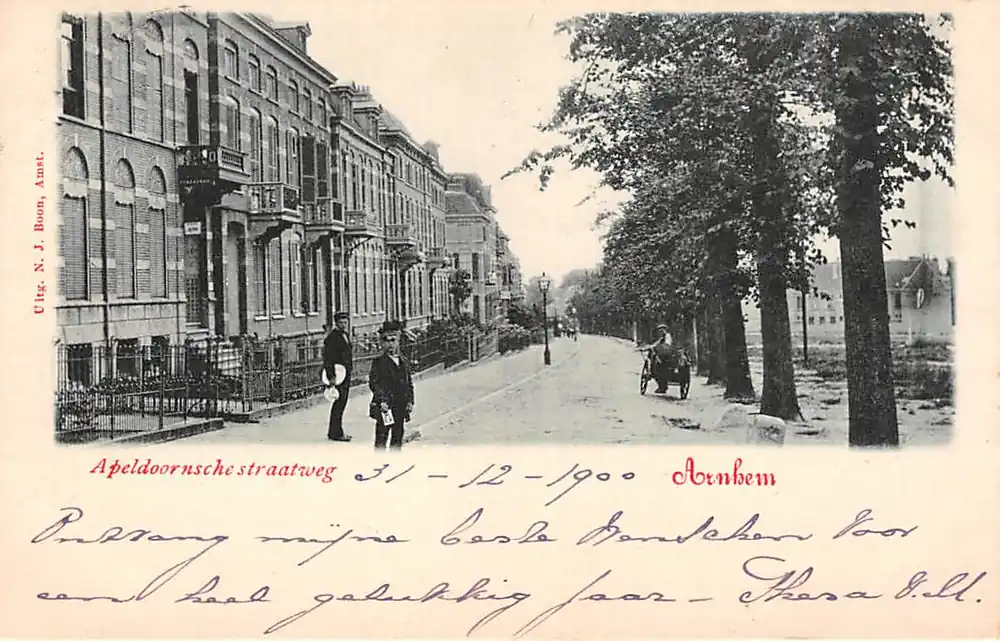 Uitg. N. J. Boon, Amst.
Apeldoornschestraatweg 31 - 12 - 1900 Arnhem
Ontvang mijne beste Wenschen Voor
een heel gelukkig jaar -